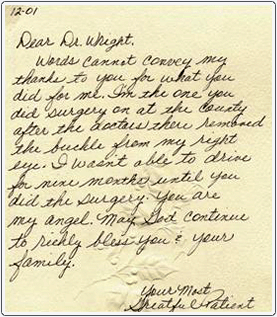 12-01
Dear Dr. Wright,
Words cannot convey my
thanks to you for what you
did for me. I'm the one you
did surgery on at the County
after the doctors there removed
the buckle from my right
eye. I wasn't able to drive
for nine months until you
did the surgery. You are
my angel. May God continue
to richly bless you & your
family.
Your Most
Greatful Patient